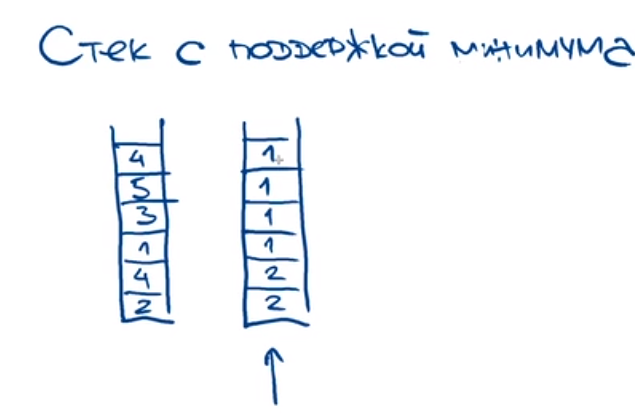 Стек с поддержкой минимума
4 1
5 1
3 1
1 1
4 2
2 2